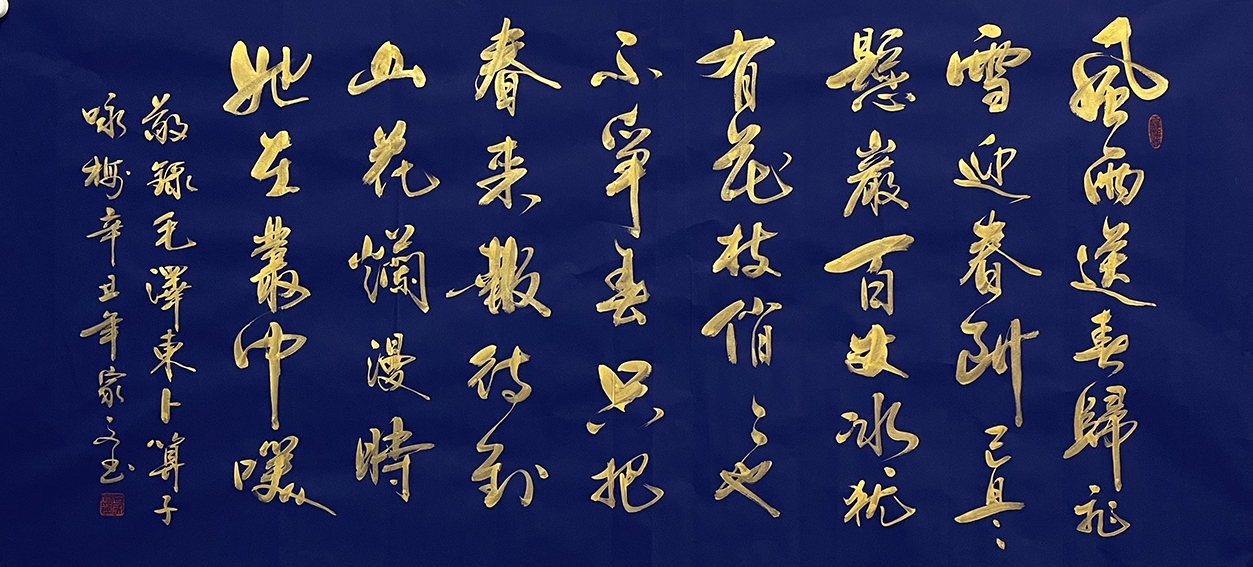 風雨送春歸飛
雪迎春到已是
懸巖百丈冰猶
有花枝俏々也
不爭春只把
春来報待到
山花爛漫時
她在叢中咲
敬錄毛澤東卜算子
咏梅辛丑年家